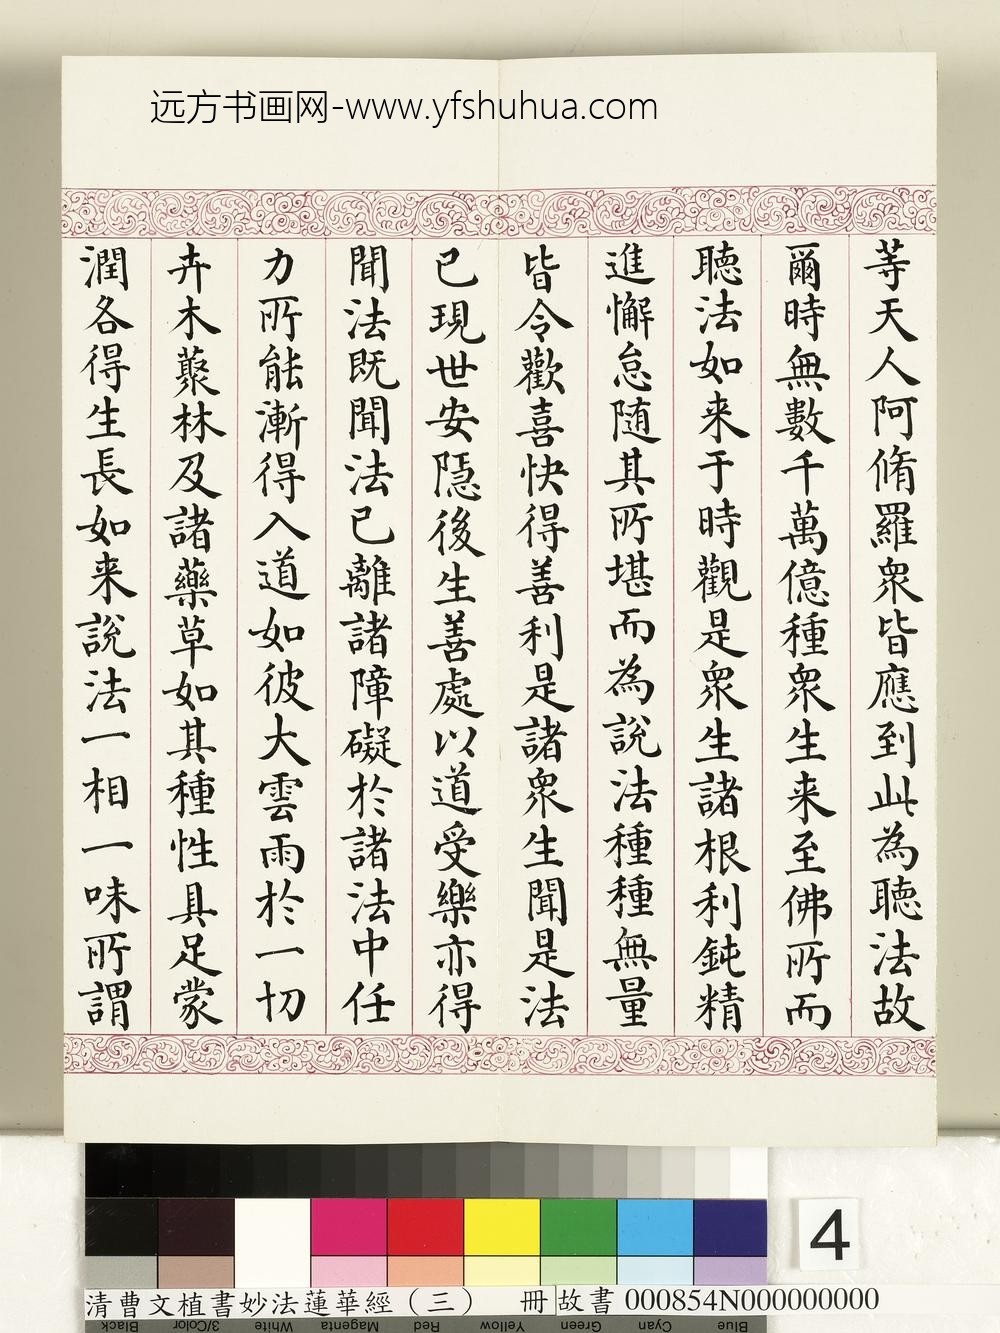 远方书画网-www.yfshuhua.com
等天人阿脩羅衆皆應到此為聽法故
爾時無數千萬億種衆生来至佛所而
聽法如来于時觀是衆生諸根利鈍精
進懈怠随其所堪而為說法種種無量
皆令歡喜快得善利是諸衆生聞是法
已現世安隱後生善處以道受樂亦得
聞法既聞法已離諸障礙於諸法中任
力所能漸得入道如彼大雲雨於一切
卉木藂林及諸藥草如其種性具足蒙
潤各得生長如来說法一相一味所謂
4
清曹文植書妙法蓮華經（三） 冊 故書 000854N000000000
Black 3/Color White Magenta Red Yellow Green Cyan Blue